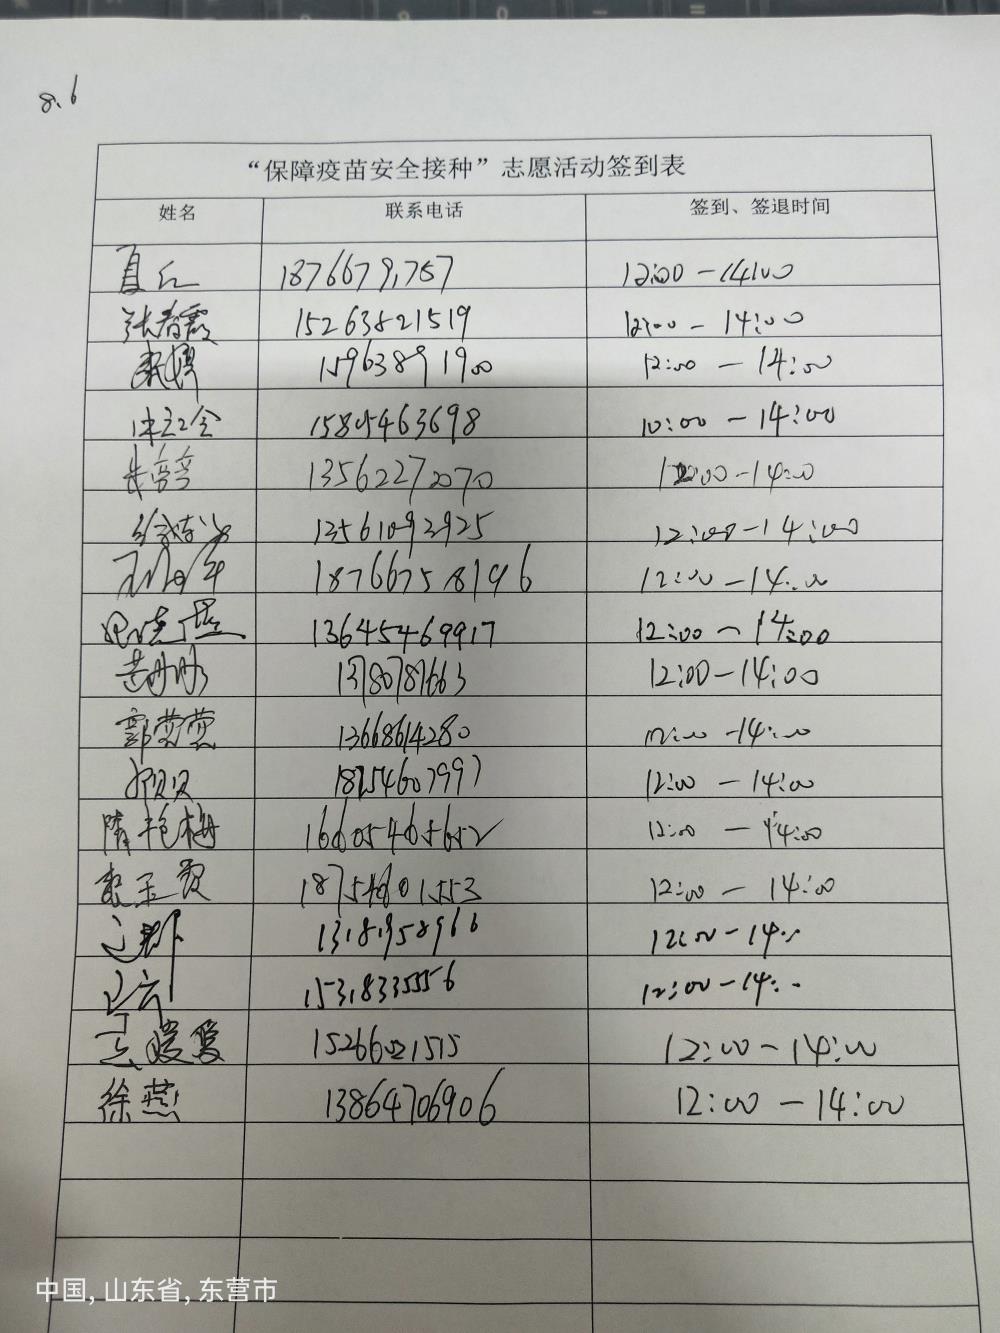 8.6
“保障疫苗安全接种”志愿活动签到表
姓名 联系电话 签到、签退时间
18766791757 12:00-14:00
张春霞 15263821519 12:00-14:00
15963891900 12:00-14:00
15805463698 10:00-14:00
13562272070 12:00-14:00
13561092925 12:00-14:00
18766758196 12:00-14:00
13645469917 12:00-14:00
黄丹彤 13780781663 12:00-14:00
郭莹莹 13668614280 12:00-14:00
18254607997 12:00-14:00
隋艳梅 16605465652 12:00-14:00
张玉霞 18754601553 12:00-14:00
13181958966 12:00-14:
15318335556 12:00-14:
王媛媛 15266021515 12:00-14:00
徐燕 13864706906 12:00-14:00
中国, 山东省, 东营市